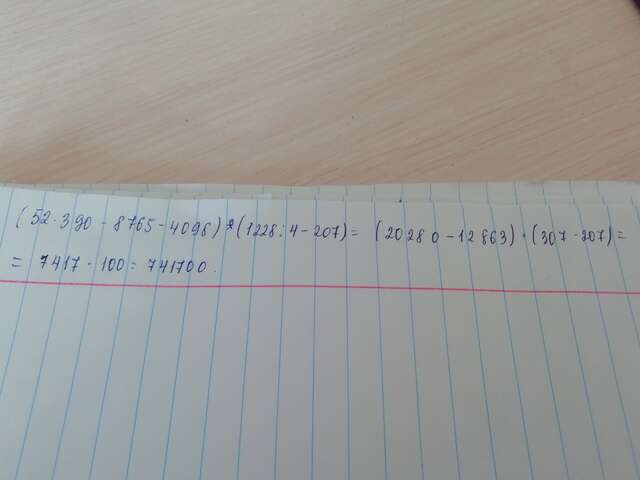 (52·390-8765-4098)·(1228:4-207)= (20280-12863)·(307-207)=
= 7417·100=741700.